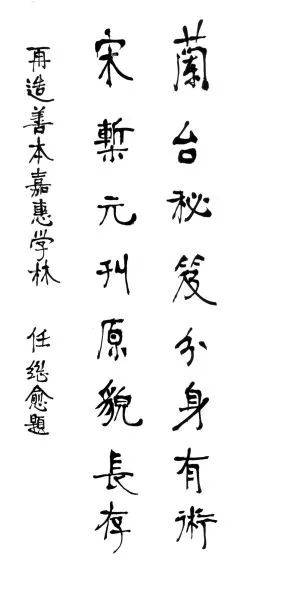 蘭台秘笈分身有術
宋槧元刊原貌長存
再造善本嘉惠学林
任继愈題